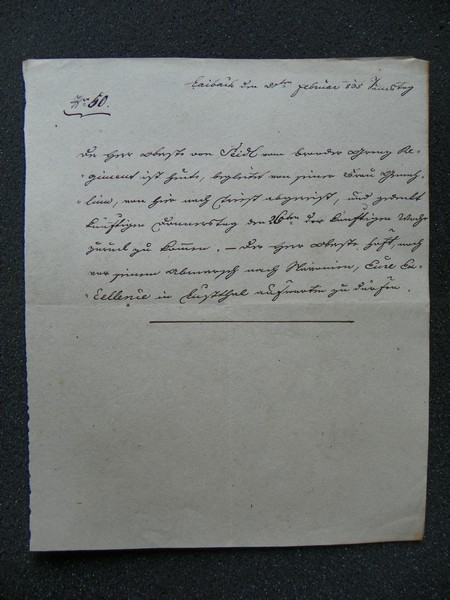 Laibach den Februar 835 Samstag
Nro 50.
Der Herr Oberste von Seidl vom Brooder Grenz Re-
giment ist heute, begleitet von seiner Frau Gemah-
linn, von hier nach Triest abgereist, und gedenkt
künftigen Donnerstag den 26ten der künftigen Woche
zurück zu kommen. – Der Herr Oberste hofft, noch
vor seinem Abmarsch nach Slavonien, Eure Ex-
cellenie in Lustthal aufwarten zu dürfen.